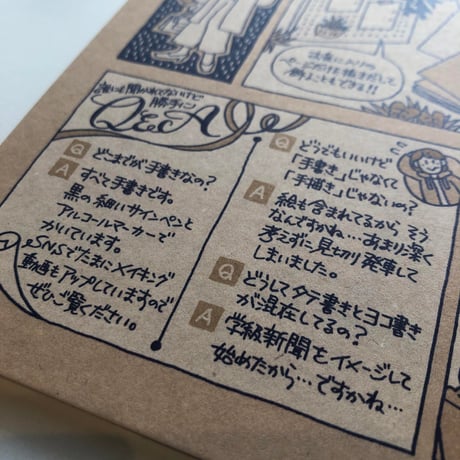 法長にかりの
飾ることもできる!!
誰にも聞かれてないけど
勝手に
Q&A
Q どこまでが手書きなの?
A すべて手書きです。
黒の細いサインペンと
アルコールマーカーで
かいています。
SNSでたまにメイキング
動画もアップしていますので
ぜひご覧ください。
Q どうでもいいけど
「手書き」じゃなくて
「手描き」じゃないの?
A 絵も含まれてるから そう
なんですかね…あまり深く
考えずに見切り発車して
しまいました。
Q どうしてタテ書きとヨコ書き
が混在してるの?
A 学級新聞をイメージして
始めたから…ですかね…